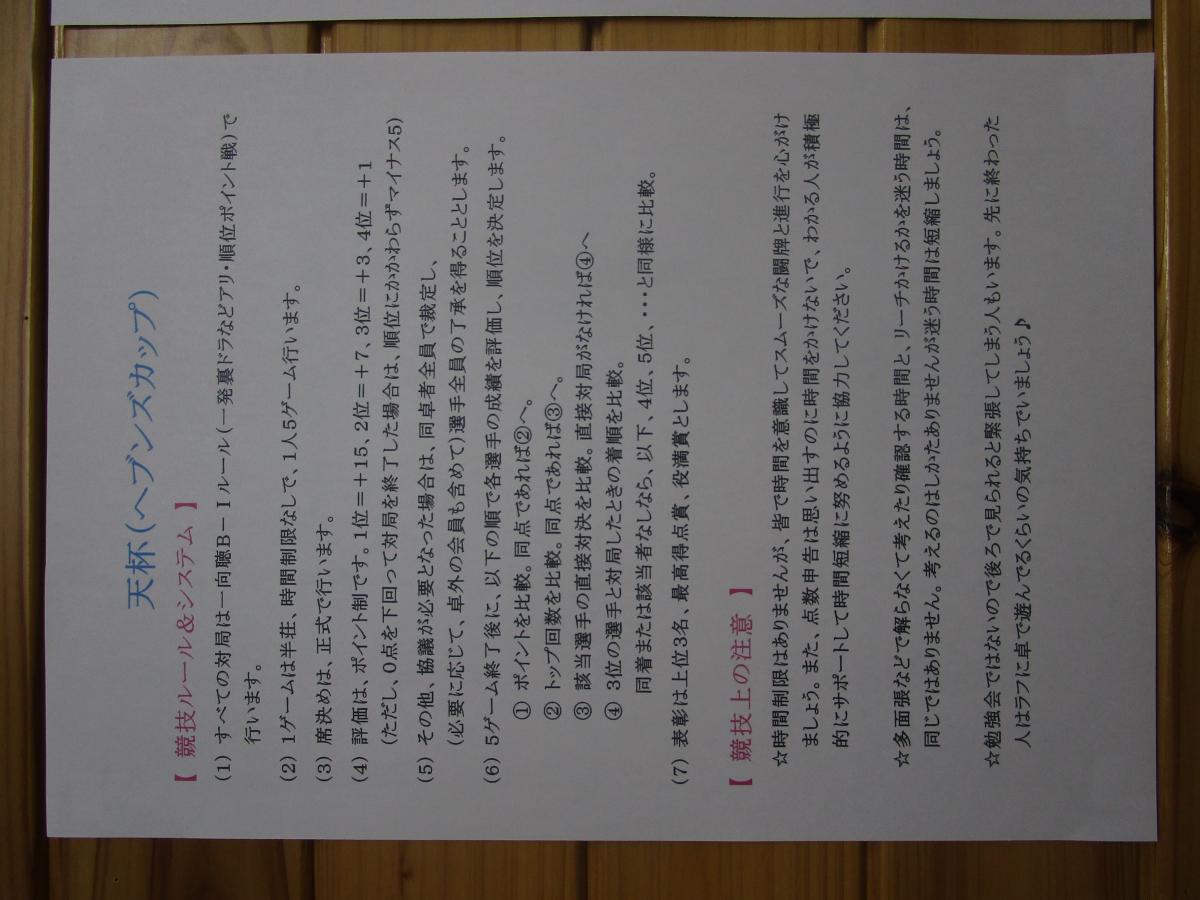 天杯(ヘブンズカップ)
【 競技ルール&システム 】
(1) すべての対局は一向聴B-Iルール(一発裏ドラなどアリ・順位ポイント戦)で
行います。
(2) 1ゲームは半荘、時間制限なしで、1人5ゲーム行います。
(3) 席決めは、正式で行います。
(4) 評価は、ポイント制です。1位=+15、2位=+7、3位=+3、4位=+1
(ただし、0点を下回って対局を終了した場合は、順位にかかわらずマイナス5)
(5) その他、協議が必要となった場合は、同卓者全員で裁定し、
(必要に応じて、卓外の会員も含めて)選手全員の了承を得ることとします。
(6) 5ゲーム終了後に、以下の順で各選手の成績を評価し、順位を決定します。
① ポイントを比較。同点であれば②へ。
② トップ回数を比較。同点であれば③へ。
③ 該当選手の直接対決を比較。直接対局がなければ④へ
④ 3位の選手と対局したときの着順を比較。
同着または該当者なしなら、以下、4位、5位、・・・と同様に比較。
(7) 表彰は上位3名、最高得点賞、役満賞とします。
【 競技上の注意 】
☆時間制限はありませんが、皆で時間を意識してスムーズな闘牌と進行を心がけ
ましょう。また、点数申告は思い出すのに時間をかけないで、わかる人が積極
的にサポートして時間短縮に努めるように協力してください。
☆多面張などで解らなくて考えたり確認する時間と、リーチかけるかを迷う時間は、
同じではありません。考えるのはしかたありませんが迷う時間は短縮しましょう。
☆勉強会ではないので後ろで見られると緊張してしまう人もいます。先に終わった
人はラフに卓で遊んでるくらいの気持ちでいましょう♪